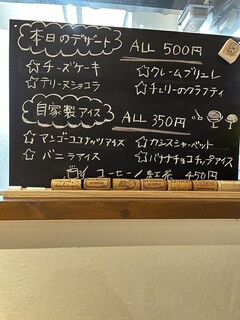 本日のデザート ALL 500円
☆チーズケーキ ☆クレームブリュレ
☆テリーヌショコラ ☆チェリーのクラフティ
自家製アイス ALL 350円
☆マンゴーココナッツアイス ☆カシスシャーベット
☆バニラアイス ☆バナナチョコチップアイス
コーヒー/紅茶 450円